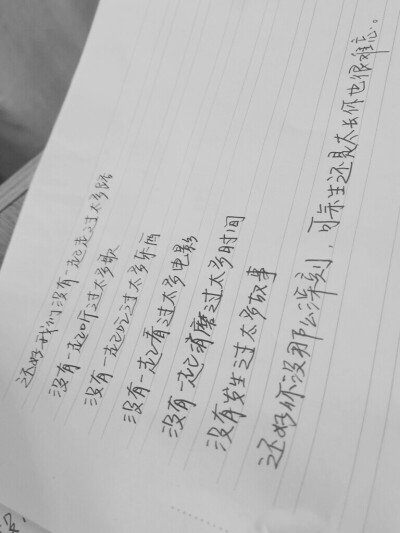 还好我们没有一起走过太多路
没有一起听过太多歌
没有一起吃过太多东西
没有一起看过太多电影
没有一起消磨过太多时间
没有发生过太多故事
还好你没那么深刻，可余生还是太长你也很难忘。